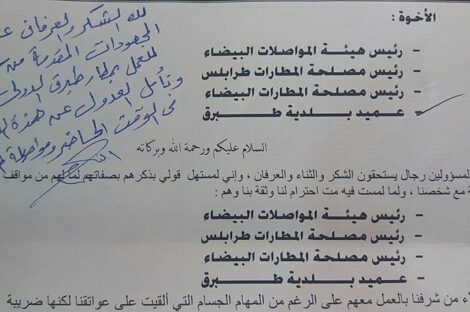 الأخوة :
– رئيس هيئة المواصلات البيضاء
– رئيس مصلحة المطارات طرابلس
– رئيس مصلحة المطارات البيضاء
– عميد بلدية طبرق
لله الشكر والعرفان
المجهودات المقدمة من
للعمل بمطار طبرق الدولي
ونأمل العدول عن هذه
في الوقت الحاضر ومواصلة
السلام عليكم ورحمة الله وبركاته
لمسؤولين رجال يستحقون الشكر والثناء والعرفان ، وإني لمستهل قولي بذكرهم بصفاتهم لما لهم من مواقف
ة مع شخصنا ، ولما لمست فيه مت احترام لنا وثقة بنا وهم :
– رئيس هيئة المواصلات البيضاء
– رئيس مصلحة المطارات طرابلس
– رئيس مصلحة المطارات البيضاء
– عميد بلدية طبرق
لاء من شرفنا بالعمل معهم على الرغم من المهام الجسام التي ألقيت على عواتقنا لكنها ضريبة